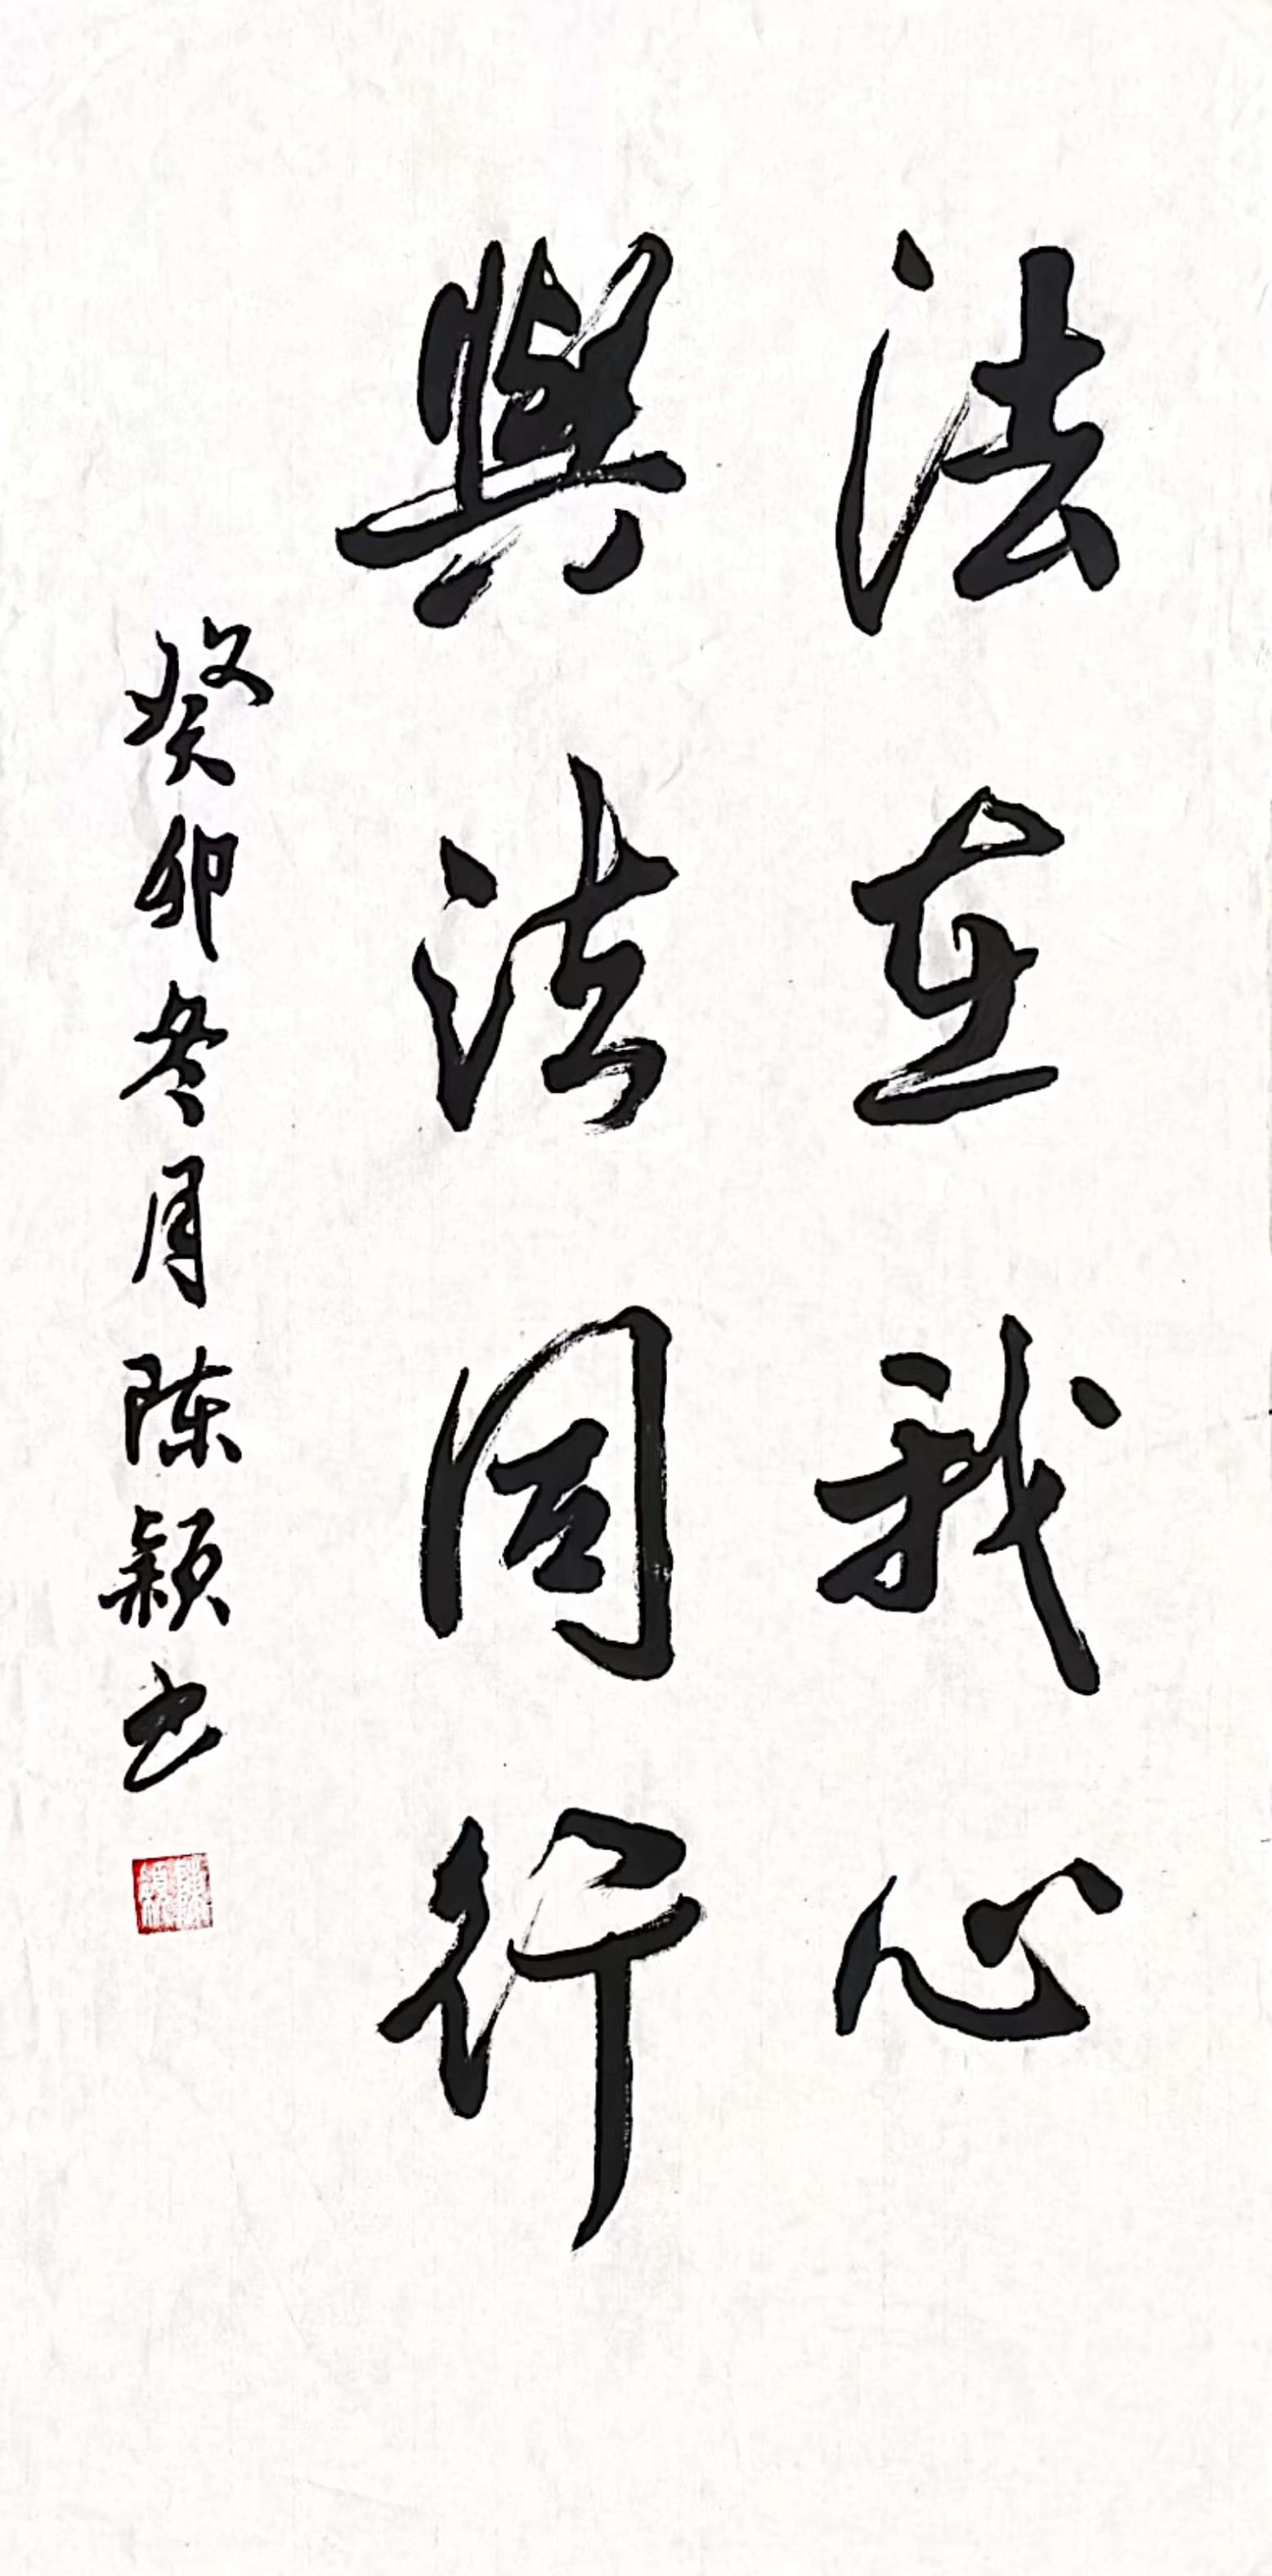 法在我心
與法同行
癸卯冬月陈颖书